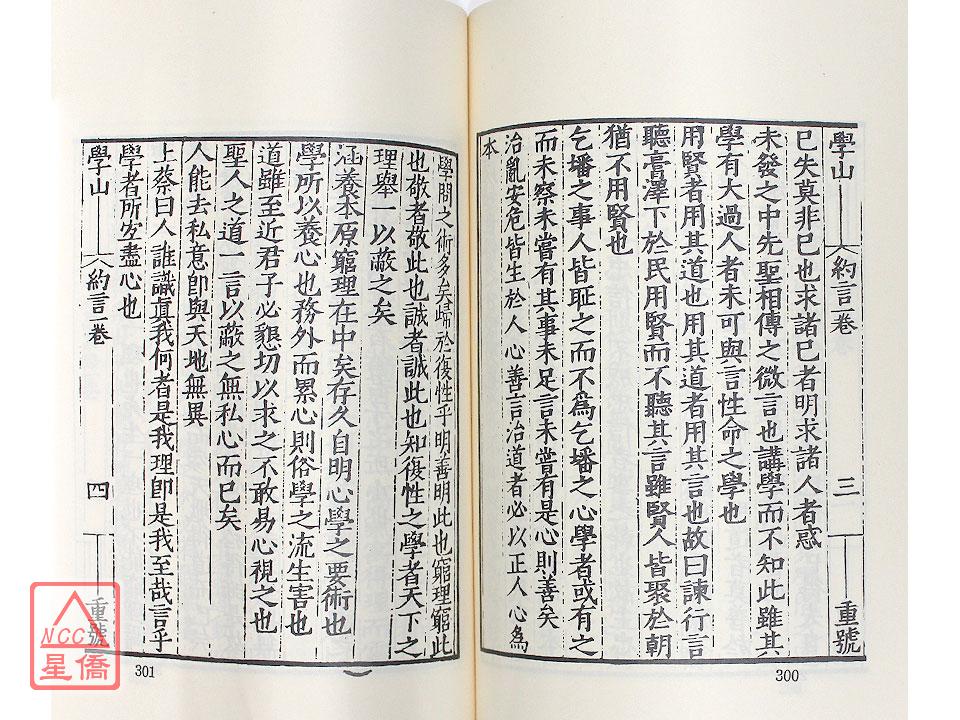 學山 約言一卷 三 重號
已失莫非已也求諸已者明求諸人者惑
未發之中先聖相傳之微言也講學而不知此雖其
學有大過人者未可與言性命之學也
用賢者用其道也用其道者用其言也故曰諫行言
聽膏澤下於民用賢而不聽其言雖賢人皆聚於朝
猶不用賢也
乞墦之事人皆耻之而不為乞墦之心學者或有之
而未察未嘗有其事未足言未嘗有是心則善矣
治亂安危皆生於人心善言治道者必以正人心為
本
300
學問之術多矣歸於復性乎明善明此也窮理窮此
也敬者敬此也誠者誠此也知復性之學者天下之
理舉一以蔽之矣
涵養本原窮理在中矣存久自明心學之要術也
學所以養心也務外而累心則俗學之流生害也
道雖至近君子必懇切以求之不敢易心視之也
聖人之道一言以蔽之無私心而已矣
人能去私意卽與天地無異
上蔡曰人誰識真我何者是我理卽是我至哉言乎
學者所宜盡心也
學山 約言一卷 四 重號
301
NCC
星僑